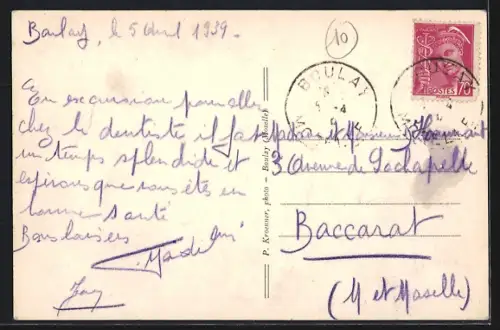 Boulay, le 5 Avril 1939.
10
En excursion pour aller
chez le dentiste il fait
un temps splendide et
espérons que vous êtes en
bonne santé
Bons baisers
BOULAY
POSTES
Madame et Monsieur
3 Avenue de Lachapelle
Baccarat
(M et Moselle)
P. Kroenner, photo – Boulay (Moselle)